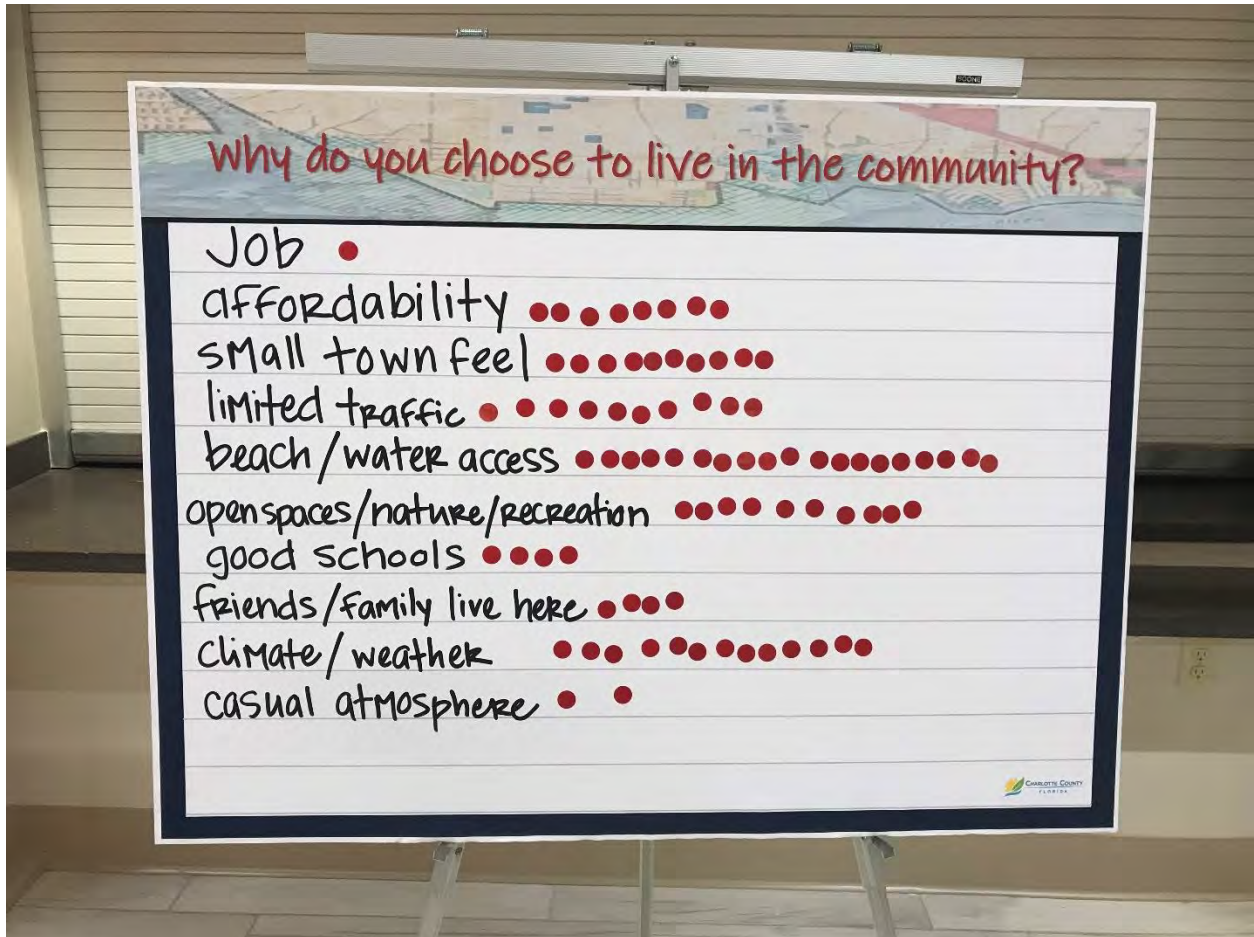 BOONE
Why do you choose to live in the community?
Job
affordability
small town feel
limited traffic
beach/water access
open spaces/nature/recreation
good schools
friends/family live here
climate/weather
casual atmosphere
CHARLOTTE COUNTY
FLORIDA